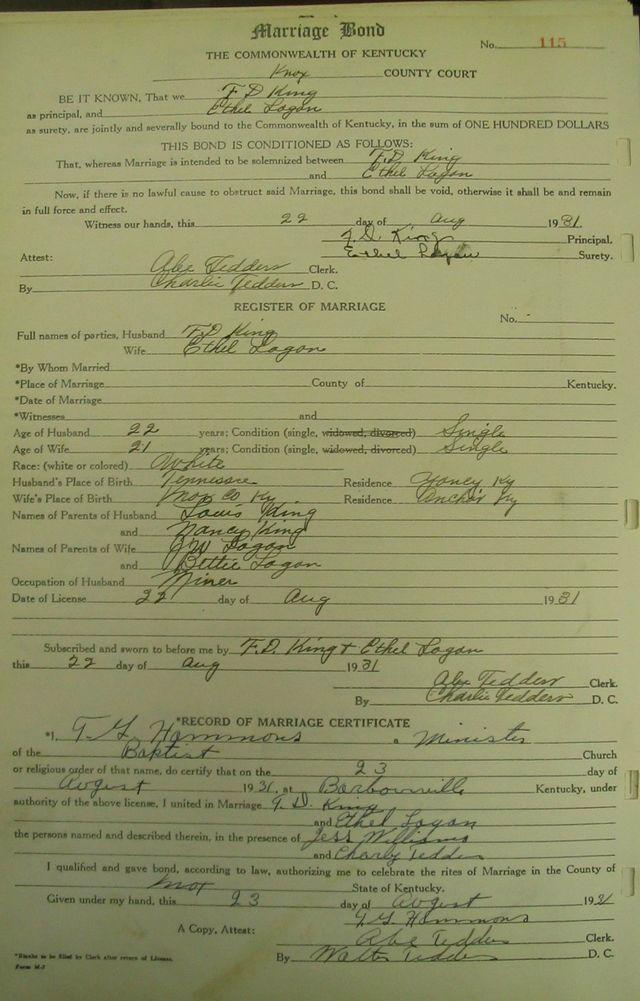 Marriage Bond
No. 115
THE COMMONWEALTH OF KENTUCKY
Knox COUNTY COURT
BE IT KNOWN, That we F D King
as principal, and Ethel Logan
as surety, are jointly and severally bound to the Commonwealth of Kentucky, in the sum of ONE HUNDRED DOLLARS
THIS BOND IS CONDITIONED AS FOLLOWS:
That, whereas Marriage is intended to be solemnized between F.D. King
and Ethel Logan
Now, if there is no lawful cause to obstruct said Marriage, this bond shall be void, otherwise it shall be and remain
in full force and effect.
Witness our hands, this 22 day of Aug 1931.
F. D. King Principal.
Ethel Logan Surety.
Attest: Abe Tedders Clerk.
By Charlie Tedders D. C.
REGISTER OF MARRIAGE
No.
Full names of parties, Husband F.D King
Wife Ethel Logan
*By Whom Married
*Place of Marriage County of Kentucky.
*Date of Marriage
*Witnesses and
Age of Husband 22 years; Condition (single, widowed, divorced) Single
Age of Wife 21 years; Condition (single, widowed, divorced) Single
Race: (white or colored) White
Husband's Place of Birth Tennessee Residence Yancy Ky
Wife's Place of Birth Knox Co Ky. Residence Anchor Ky
Names of Parents of Husband Louis King
and Nancy King
Names of Parents of Wife J W Logan
and Bettie Logan
Occupation of Husband Miner
Date of License 22 day of Aug 1931
Subscribed and sworn to before me by F.D. King + Ethel Logan
this 22 day of Aug 1931
Abe Tedders Clerk.
By Charlie Tedders D. C.
*RECORD OF MARRIAGE CERTIFICATE
*I, T. G. Hammons a Minister
of the Baptist Church
or religious order of that name, do certify that on the 23 day of
Avgest 1931, at Barbourville Kentucky, under
authority of the above license, I united in Marriage F. D. King
and Ethel Logan
the persons named and described therein, in the presence of Jess Williams
and Charly Tedders
I qualified and gave bond, according to law, authorizing me to celebrate the rites of Marriage in the County of
Knox State of Kentucky.
Given under my hand, this 23 day of Avgest 1931
T. G. Hammons
A Copy, Attest: Abe Tedders Clerk.
By Walter Tedders D. C.
*Blanks to be filled by Clerk after return of License.
Form M-2